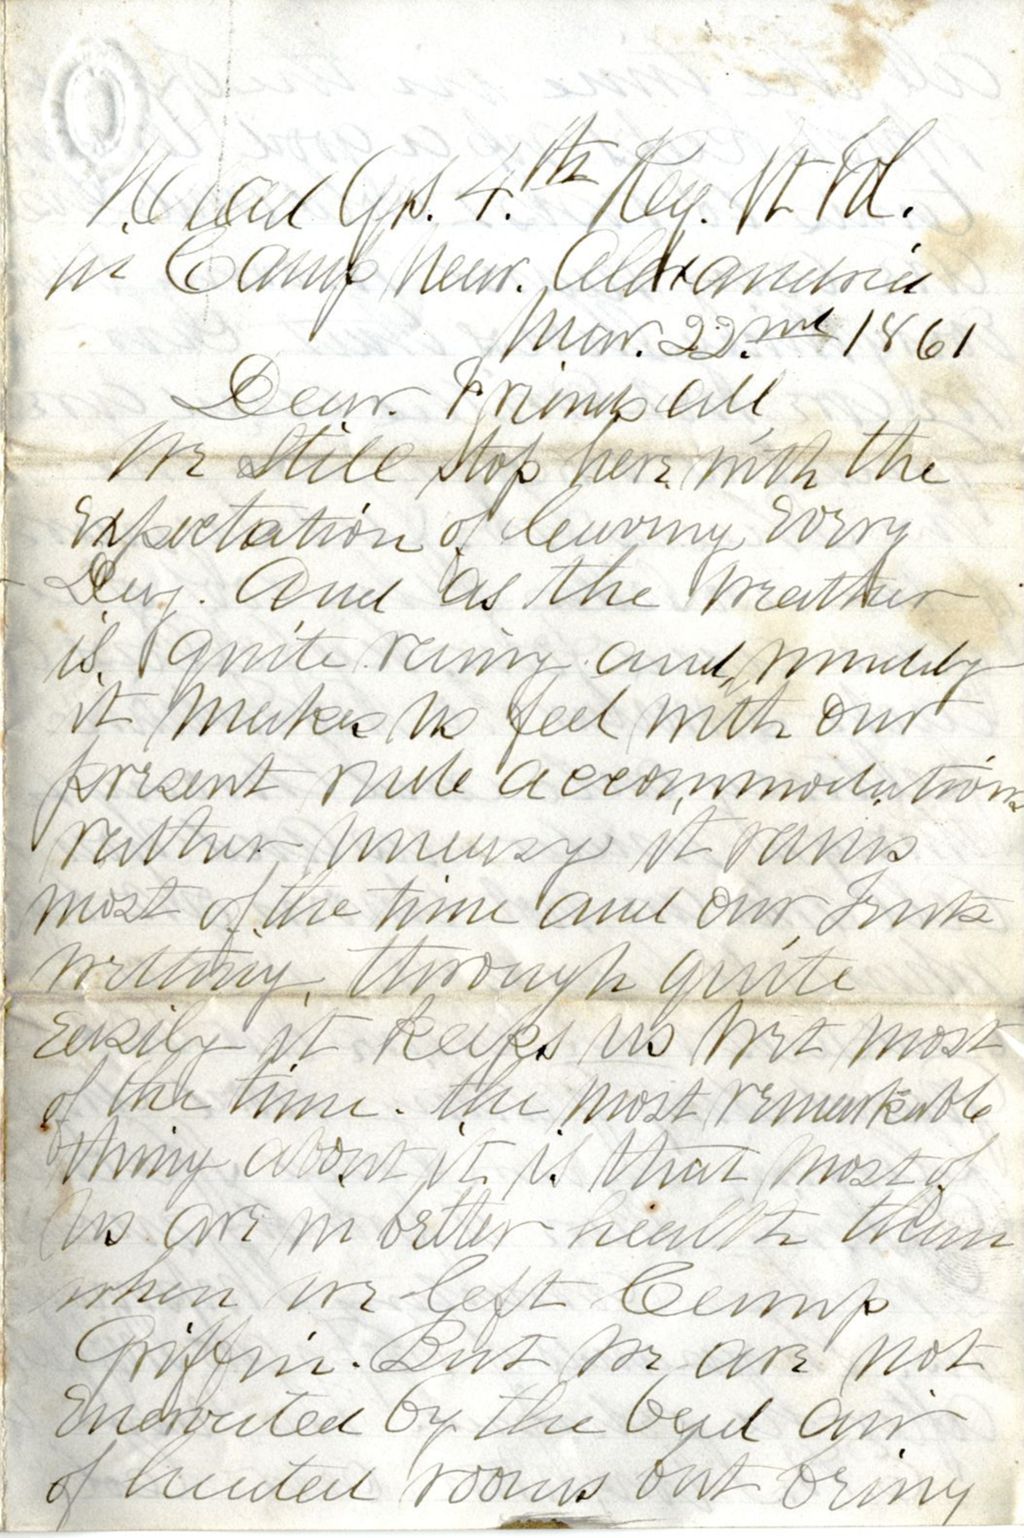 Head Qrs. 4.th Reg. Vt Vol.
in Camp Near. Alexandria
Mar. 22.nd 1861
Dear. Friends all
We Still Stop here with the
Expectation of leaving Every
Day. And as the weather
is quite rainy and muddy
it makes us feel with our
present rude accommodations
rather uneasy it rains
most of the time and our Tents
wetting through quite
Easily it keeps us wet most
of the time. the most remarkable
thing about it is that most of
us are in better health than
when we left Camp
Griffin. But we are not
Enervated by the bad air
of heated rooms but being